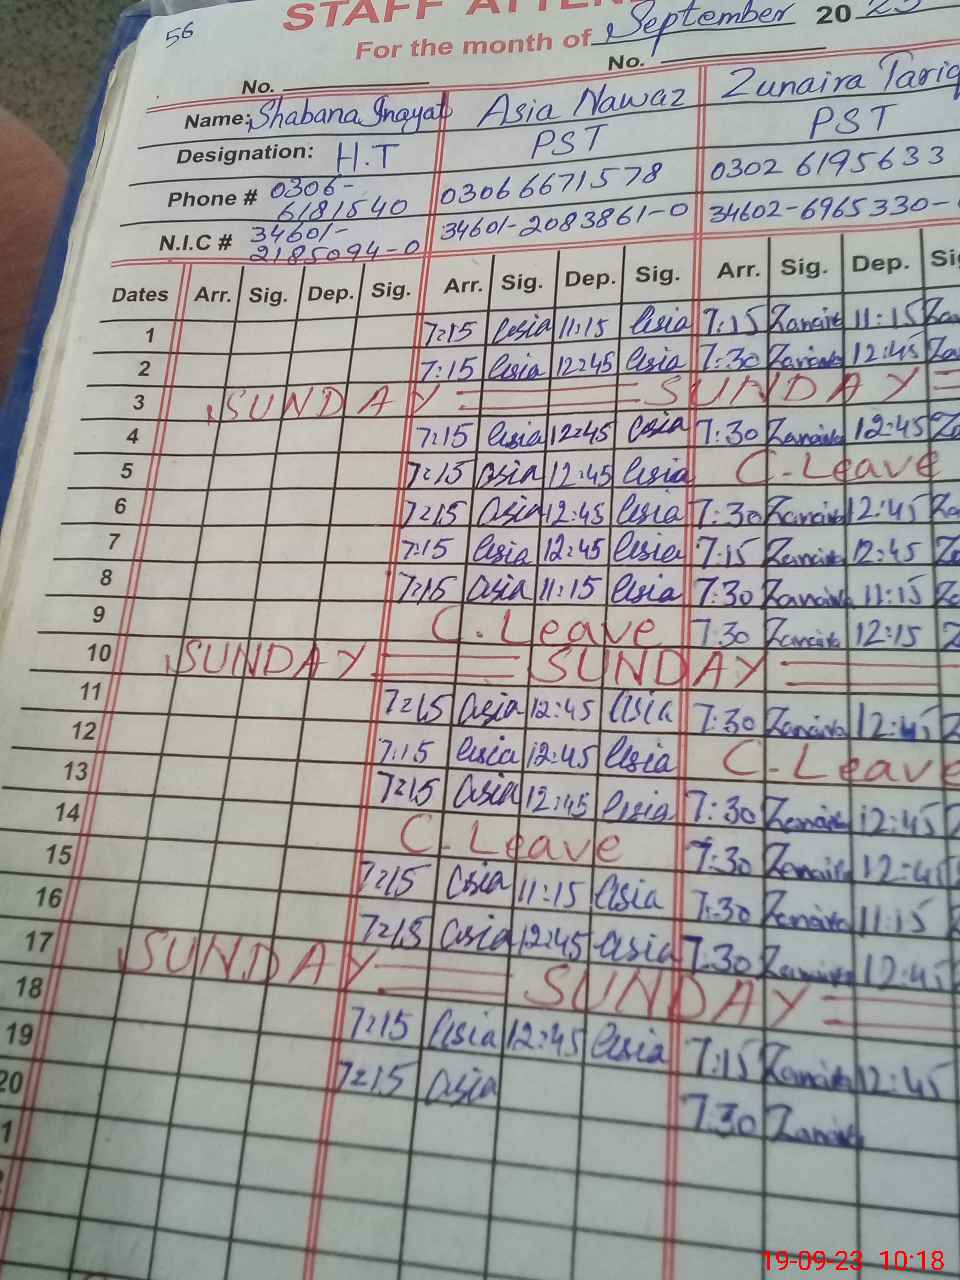 56
STAFF ATTEN
For the month of September 20 23
No. No.
Name: Shabana Inayat Asia Nawaz Zunaira Tariq
Designation: H.T PST PST
Phone # 0306-6181540 03066671578 0302 6195633
N.I.C # 34601-2185094-0 34601-2083861-0 34602-6965330-
Dates Arr. Sig. Dep. Sig. Arr. Sig. Dep. Sig. Arr. Sig. Dep. Si
1 7:15 Asia 11:15 Asia 7:15 Zunaira 11:15
2 7:15 Asia 12:45 Asia 7:30 Zunaira 12:45
3 SUNDAY SUNDAY
4 7:15 Asia 12:45 Asia 7:30 Zunaira 12:45
5 7:15 Asia 12:45 Asia C. Leave
6 7:15 Asia 12:45 Asia 7:30 Zunaira 12:45
7 7:15 Asia 12:45 Asia 7:15 Zunaira 12:45
8 7:15 Asia 11:15 Asia 7:30 Zunaira 11:15
9 C. Leave 7:30 Zunaira 12:15
10 SUNDAY SUNDAY
11 7:15 Asia 12:45 Asia 7:30 Zunaira 12:45
12 7:15 Asia 12:45 Asia C. Leave
13 7:15 Asia 12:45 Asia 7:30 Zunaira 12:45
14 C. Leave 7:30 Zunaira 12:45
15 7:15 Asia 11:15 Asia 7:30 Zunaira 11:15
16 7:15 Asia 12:45 Asia 7:30 Zunaira 12:45
17 SUNDAY SUNDAY
18 7:15 Asia 12:45 Asia 7:15 Zunaira 12:45
19 7:15 Asia 7:30 Zunaira
20
1
19-09-23 10:18